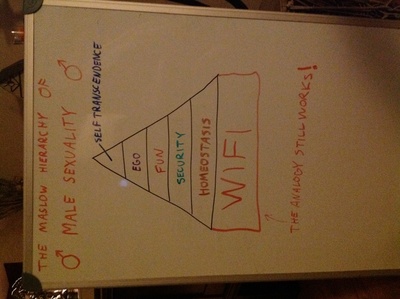 THE MASLOW HIERARCHY OF
♂ MALE SEXUALITY ♂
SELF TRANSCENDENCE
EGO
FUN
SECURITY
HOMEOSTASIS
WIFI
THE ANALOGY STILL WORKS!